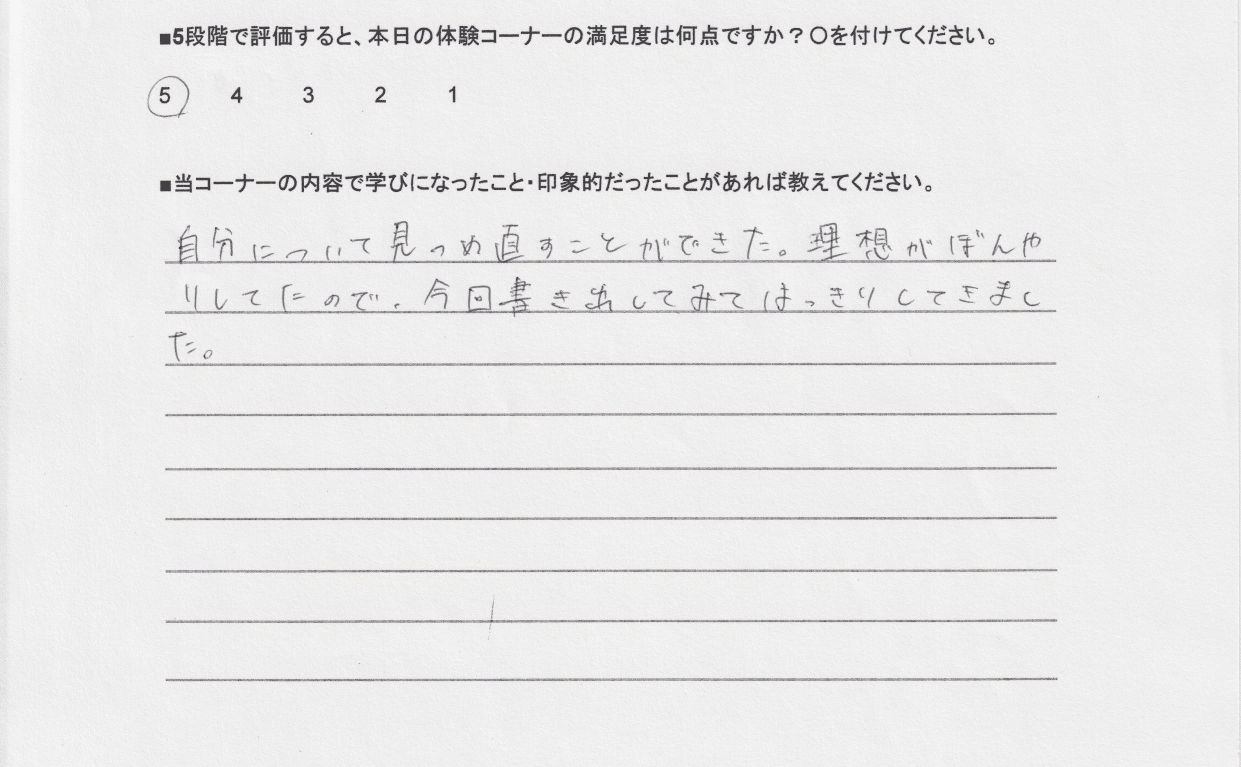 ■5段階で評価すると、本日の体験コーナーの満足度は何点ですか？〇を付けてください。
5 4 3 2 1
■当コーナーの内容で学びになったこと・印象的だったことがあれば教えてください。
自分について見つめ直すことができた。理想がぼんや
りしてたので、今回書き出してみてはっきりしてきまし
た。